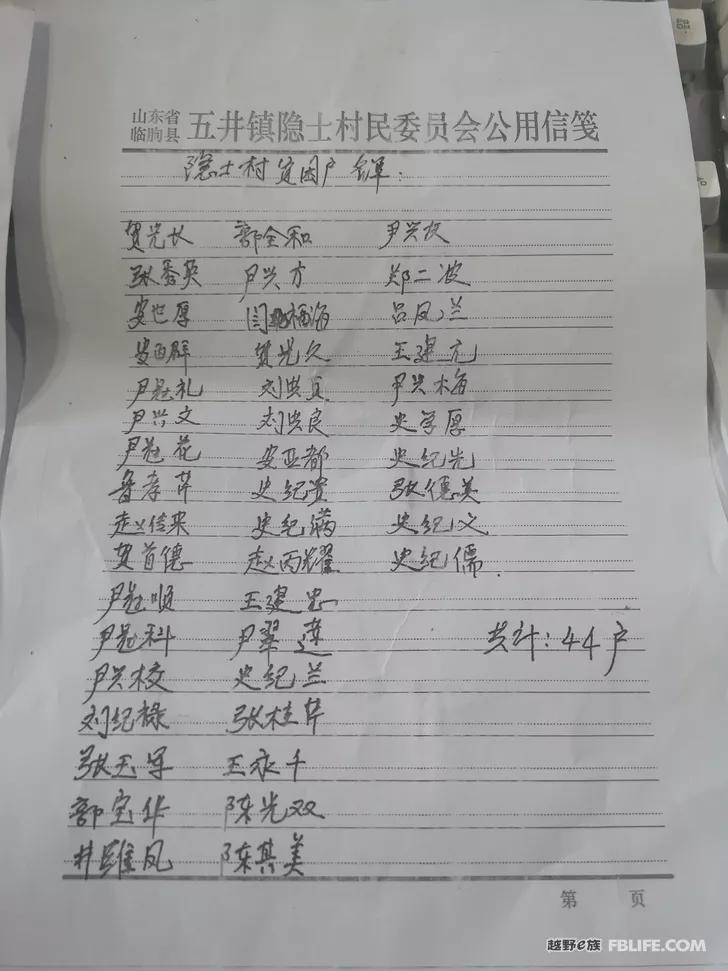 山东省
临朐县 五井镇隐士村民委员会公用信笺
隐士村贫困户名单:
贺光长 郭全和 尹兴权
张秀英 尹兴方 郑二波
安世厚 闫福海 吕凤兰
安百群 贺光久 王建亢
尹起礼 刘洪贞 尹兴梅
尹兴文 刘洪良 史学厚
尹起花 安亚都 史纪先
鲁孝芹 史纪贵 张德美
赵传来 史纪满 史纪文
贺首德 赵丙耀 史纪儒.
尹起顺 王建忠
尹起科 尹翠莲 共计:44户
尹兴校 史纪兰
刘纪禄 张桂芹
张玉军 王永千
郭宝华 陈光双
井雕凤 陈其美
第 页
越野e族 FBLIFE.COM